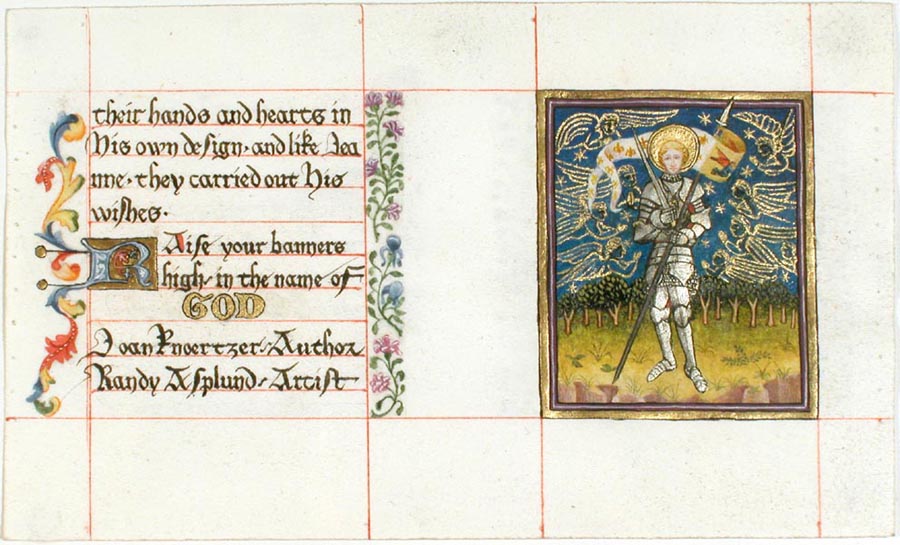 their hands and hearts in
His own design · and like Jea
nne · they carried out His
wishes ·
RAise your banners
high · in the name of
GOD
Joan Knoertzer · Author
Randy Asplund · Artist